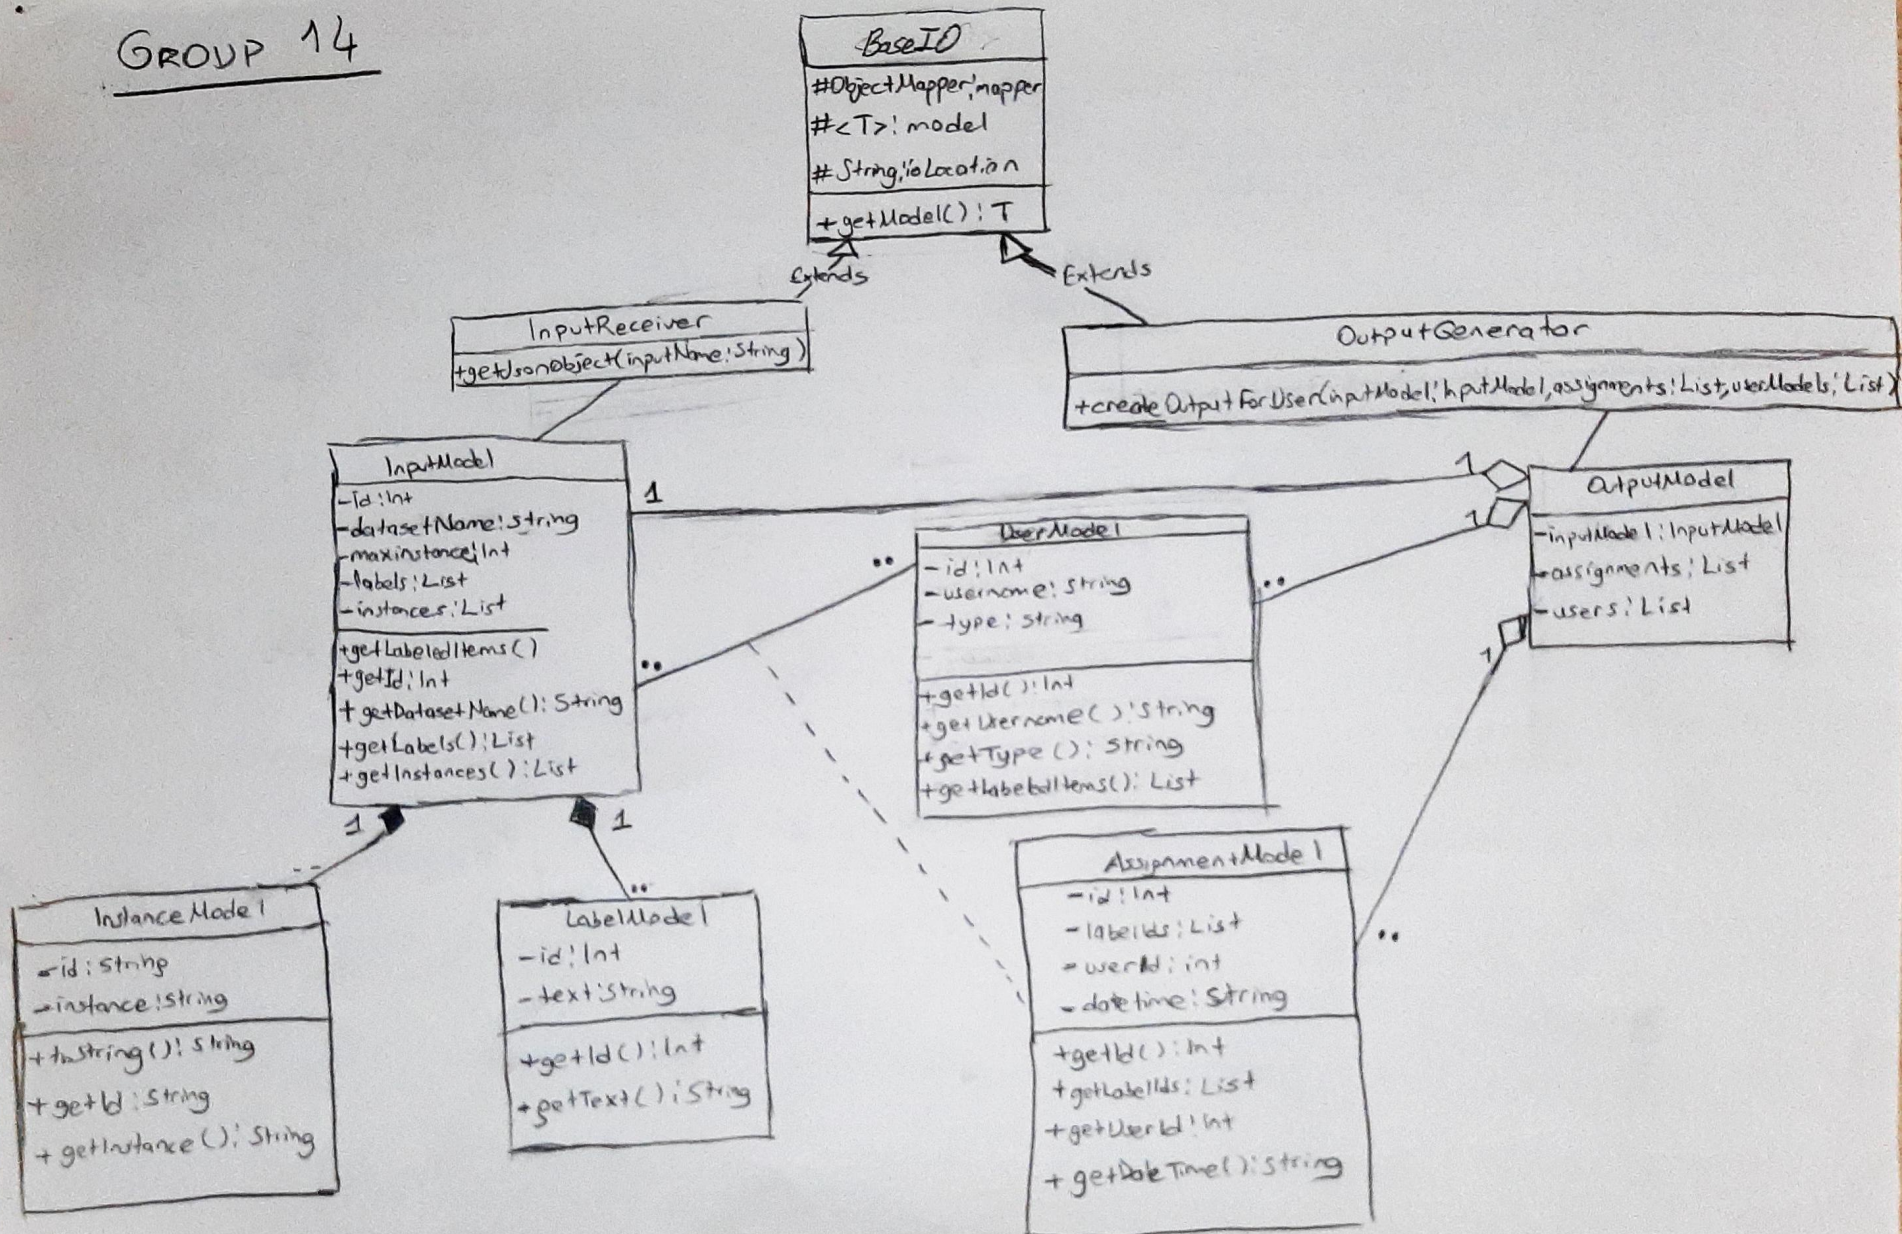 GROUP 14
BaseIO
#ObjectMapper:mapper
#<T>:model
#String:ioLocation
+getModel():T
Extends
Extends
InputReceiver
+getJsonObject(inputName:String)
OutputGenerator
+createOutputForUser(inputModel:InputModel,assignments:List,userModels:List)
InputModel
-id:Int
-datasetName:String
-maxinstance:Int
-labels:List
-instances:List
+getLabeledItems()
+getId:Int
+getDatasetName():String
+getLabels():List
+getInstances():List
1
1
1
..
..
..
UserModel
-id:Int
-username:String
-type:String
+getId():Int
+getUsername():String
+getType():String
+getLabeledItems():List
OutputModel
-inputModel:InputModel
-assignments:List
-users:List
1
..
1
1
..
..
InstanceModel
-id:String
-instance:String
+toString():String
+getId:String
+getInstance():String
LabelModel
-id:Int
-text:String
+getId():Int
+getText():String
AssignmentModel
-id:Int
-labelIds:List
-userId:int
-datetime:String
+getId():Int
+getLabelIds:List
+getUserId:Int
+getDateTime():String